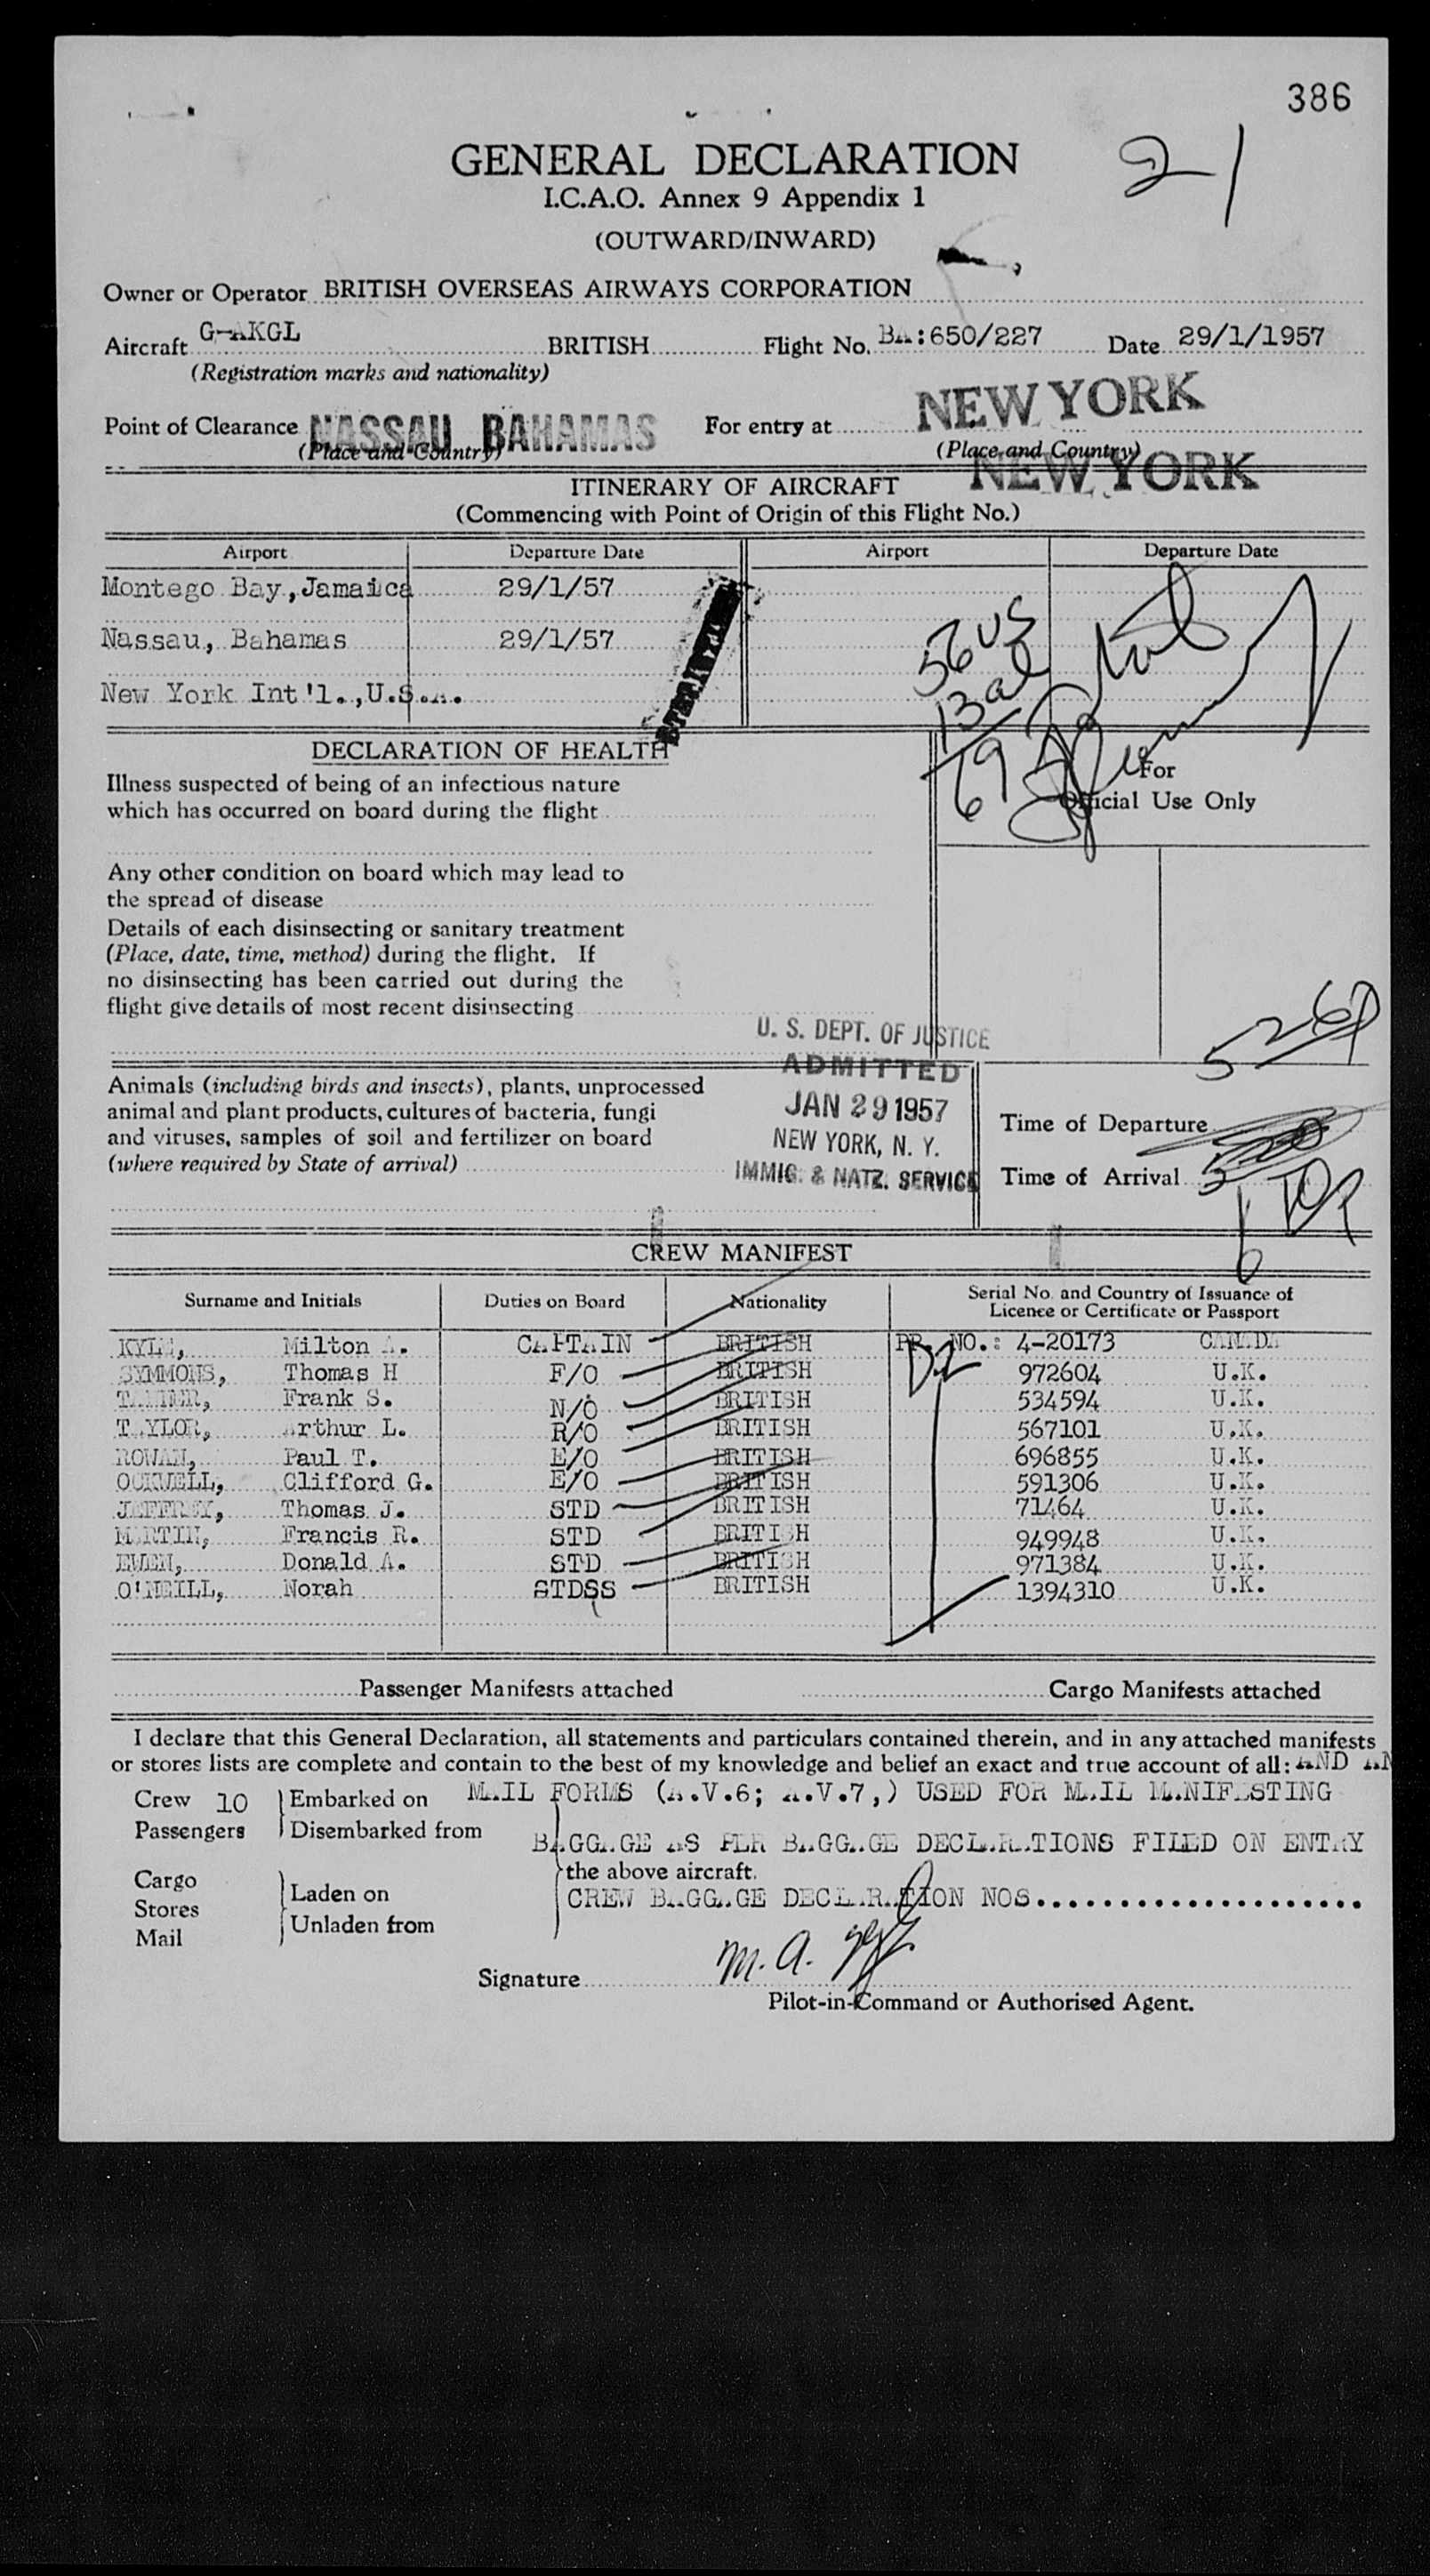 386
21
GENERAL DECLARATION
I.C.A.O. Annex 9 Appendix 1
(OUTWARD/INWARD)
Owner or Operator BRITISH OVERSEAS AIRWAYS CORPORATION
Aircraft G-AKGL BRITISH Flight No. BA:650/227 Date 29/1/1957
(Registration marks and nationality)
Point of Clearance NASSAU BAHAMAS For entry at NEW YORK
(Place and Country) (Place and Country)
NEW YORK
ITINERARY OF AIRCRAFT
(Commencing with Point of Origin of this Flight No.)
Airport Departure Date Airport Departure Date
Montego Bay, Jamaica 29/1/57
Nassau, Bahamas 29/1/57
New York Int'l., U.S.A.
56 US
13 al
69
DECLARATION OF HEALTH
Illness suspected of being of an infectious nature
which has occurred on board during the flight
For
Official Use Only
Any other condition on board which may lead to
the spread of disease
Details of each disinsecting or sanitary treatment
(Place, date, time, method) during the flight. If
no disinsecting has been carried out during the
flight give details of most recent disinsecting
U. S. DEPT. OF JUSTICE
ADMITTED
JAN 29 1957
NEW YORK, N. Y.
IMMIG. & NATZ. SERVICE
Animals (including birds and insects), plants, unprocessed
animal and plant products, cultures of bacteria, fungi
and viruses, samples of soil and fertilizer on board
(where required by State of arrival)
Time of Departure
Time of Arrival
CREW MANIFEST
Surname and Initials Duties on Board Nationality Serial No. and Country of Issuance of
Licence or Certificate or Passport
KYLE, Milton A. CAPTAIN BRITISH PP. NO.: 4-20173 CANADA
SYMMONS, Thomas H F/O BRITISH 972604 U.K.
Frank S. N/O BRITISH 534594 U.K.
TAYLOR, Arthur L. R/O BRITISH 567101 U.K.
ROWAN, Paul T. E/O BRITISH 696855 U.K.
OCKWELL, Clifford G. E/O BRITISH 591306 U.K.
JEFFREY, Thomas J. STD BRITISH 71464 U.K.
MARTIN, Francis R. STD BRITISH 949948 U.K.
EWEN, Donald A. STD BRITISH 971384 U.K.
O'NEILL, Norah STDSS BRITISH 1394310 U.K.
Passenger Manifests attached Cargo Manifests attached
I declare that this General Declaration, all statements and particulars contained therein, and in any attached manifests
or stores lists are complete and contain to the best of my knowledge and belief an exact and true account of all: AND
Crew 10 Embarked on MAIL FORMS (A.V.6; A.V.7,) USED FOR MAIL MANIFESTING
Passengers Disembarked from BAGGAGE AS PER BAGGAGE DECLARATIONS FILED ON ENTRY
the above aircraft.
Cargo Laden on CREW BAGGAGE DECLARATION NOS....................
Stores
Unladen from
Mail
Signature M. A.
Pilot-in-Command or Authorised Agent.